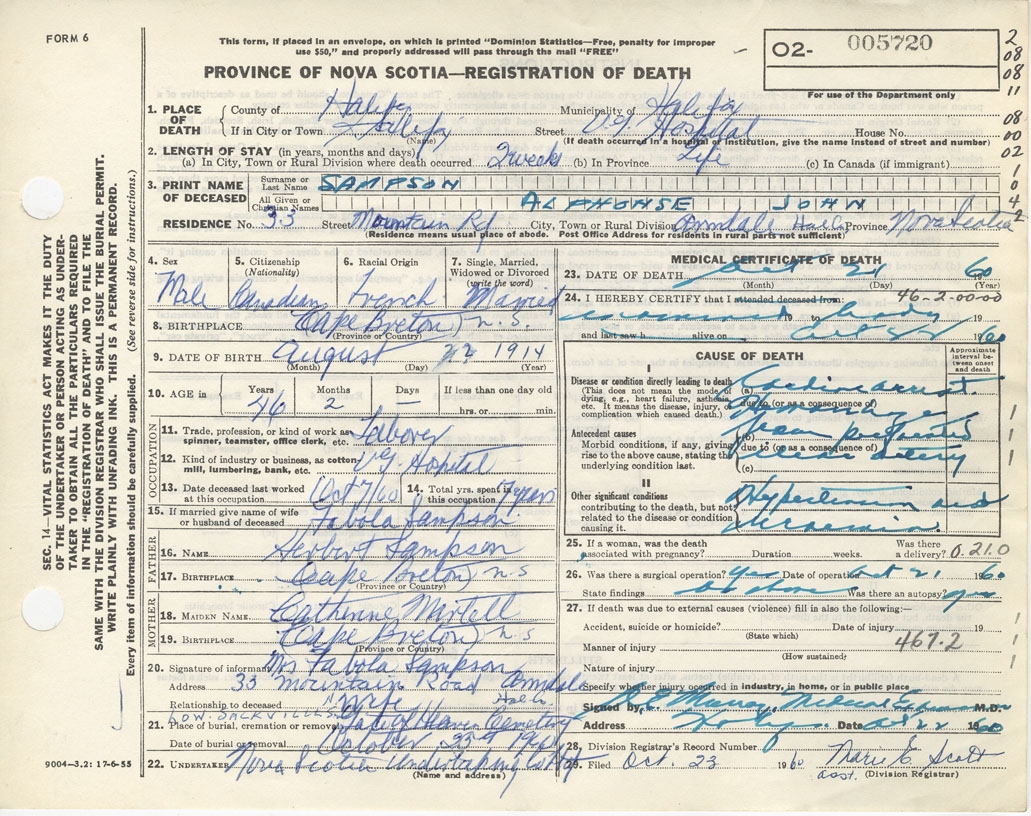 FORM 6
This form, if placed in an envelope, on which is printed "Dominion Statistics—Free, penalty for improper
use $50," and properly addressed will pass through the mail "FREE"
O2- 005720
For use of the Department only
2
08
08
11
08
00
02
1
0
4
2
PROVINCE OF NOVA SCOTIA—REGISTRATION OF DEATH
1. PLACE OF DEATH
County of Halifax
Municipality of Halifax
If in City or Town Halifax (Name) Street V.G. Hospital House No.
(If death occurred in a hospital or institution, give the name instead of street and number)
2. LENGTH OF STAY (in years, months and days)
(a) In City, Town or Rural Division where death occurred 2 weeks (b) In Province Life (c) In Canada (if immigrant)
3. PRINT NAME OF DECEASED
Surname or Last Name SAMPSON
All Given or Christian Names ALPHONSE JOHN
RESIDENCE No. 33 Street Mountain Rd City, Town or Rural Division Armdale Hal. Co. Province Nova Scotia
(Residence means usual place of abode. Post Office Address for residents in rural parts not sufficient)
4. Sex Male
5. Citizenship (Nationality) Canadian
6. Racial Origin French
7. Single, Married, Widowed or Divorced (write the word) Married
8. BIRTHPLACE Cape Breton N.S.
(Province or Country)
9. DATE OF BIRTH August 22 1914
(Month) (Day) (Year)
10. AGE in Years 46 Months 2 Days — If less than one day old hrs. or min.
OCCUPATION
11. Trade, profession, or kind of work as spinner, teamster, office clerk, etc. Labourer
12. Kind of industry or business, as cotton-mill, lumbering, bank, etc. V.G. Hospital
13. Date deceased last worked at this occupation Oct 7/60
14. Total yrs. spent in this occupation 7 years
15. If married give name of wife or husband of deceased Fabola Sampson
FATHER
16. NAME Herbert Sampson
17. BIRTHPLACE Cape Breton N.S
(Province or Country)
MOTHER
18. MAIDEN NAME Catherine
19. BIRTHPLACE Cape Breton N.S
(Province or Country)
20. Signature of informant Mrs Fabola Sampson
Address 33 Mountain Road Armdale
Hal. Co.
Relationship to deceased Wife
LOW. SACKVILLE
21. Place of burial, cremation or removal Gate of Heaven Cemetery
Date of burial or removal October 1960
22. UNDERTAKER Nova Scotia Undertaking Co
(Name and address)
MEDICAL CERTIFICATE OF DEATH
23. DATE OF DEATH Oct 21 60
(Month) (Day) (Year)
24. I HEREBY CERTIFY that I attended deceased from: 46-2-00-00
examined 19 to body 19
and last saw h alive on Oct 1960
CAUSE OF DEATH
Approximate interval between onset and death
I
Disease or condition directly leading to death
(This does not mean the mode of dying, e.g., heart failure, asthenia, etc. It means the disease, injury, or complication which caused death.)
(a) Cardiac arrest.
due to (or as a consequence of)
Hemorrhage
Antecedent causes
Morbid conditions, if any, giving rise to the above cause, stating the underlying condition last.
(b) from
due to (or as a consequence of)
(c) artery
II
Other significant conditions contributing to the death, but not related to the disease or condition causing it.
Hypertension and
Uraemia.
25. If a woman, was the death associated with pregnancy? Duration weeks. Was there a delivery? 0.21.0
26. Was there a surgical operation? yes Date of operation Oct 21 1960
State findings as above Was there an autopsy? yes
27. If death was due to external causes (violence) fill in also the following:—
Accident, suicide or homicide? Date of injury 19
(State which)
Manner of injury 467.2
(How sustained)
Nature of injury
Specify whether injury occurred in industry, in home, or in public place
Signed by Murray, Medical M.D.
Address Date Oct 22 1960
28. Division Registrar's Record Number
29. Filed Oct. 23 1960 Marie E. Scott
asst. (Division Registrar)
SEC. 14—VITAL STATISTICS ACT MAKES IT THE DUTY
OF THE UNDERTAKER OR PERSON ACTING AS UNDER-
TAKER TO OBTAIN ALL THE PARTICULARS REQUIRED
IN THE "REGISTRATION OF DEATH" AND TO FILE THE
SAME WITH THE DIVISION REGISTRAR WHO SHALL ISSUE THE BURIAL PERMIT.
WRITE PLAINLY WITH UNFADING INK. THIS IS A PERMANENT RECORD.
Every item of information should be carefully supplied. (See reverse side for instructions.)
9004—3.2: 17-6-55